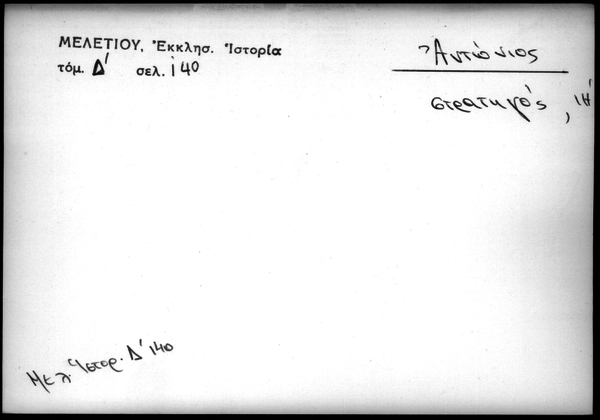 ΜΕΛΕΤΙΟΥ, Ἐκκλησ. Ἱστορία
τόμ. Δ' σελ. 140
Ἀντώνιος
στρατηγός, ιη'
Μελ. Ἱστορ. Δ' 140